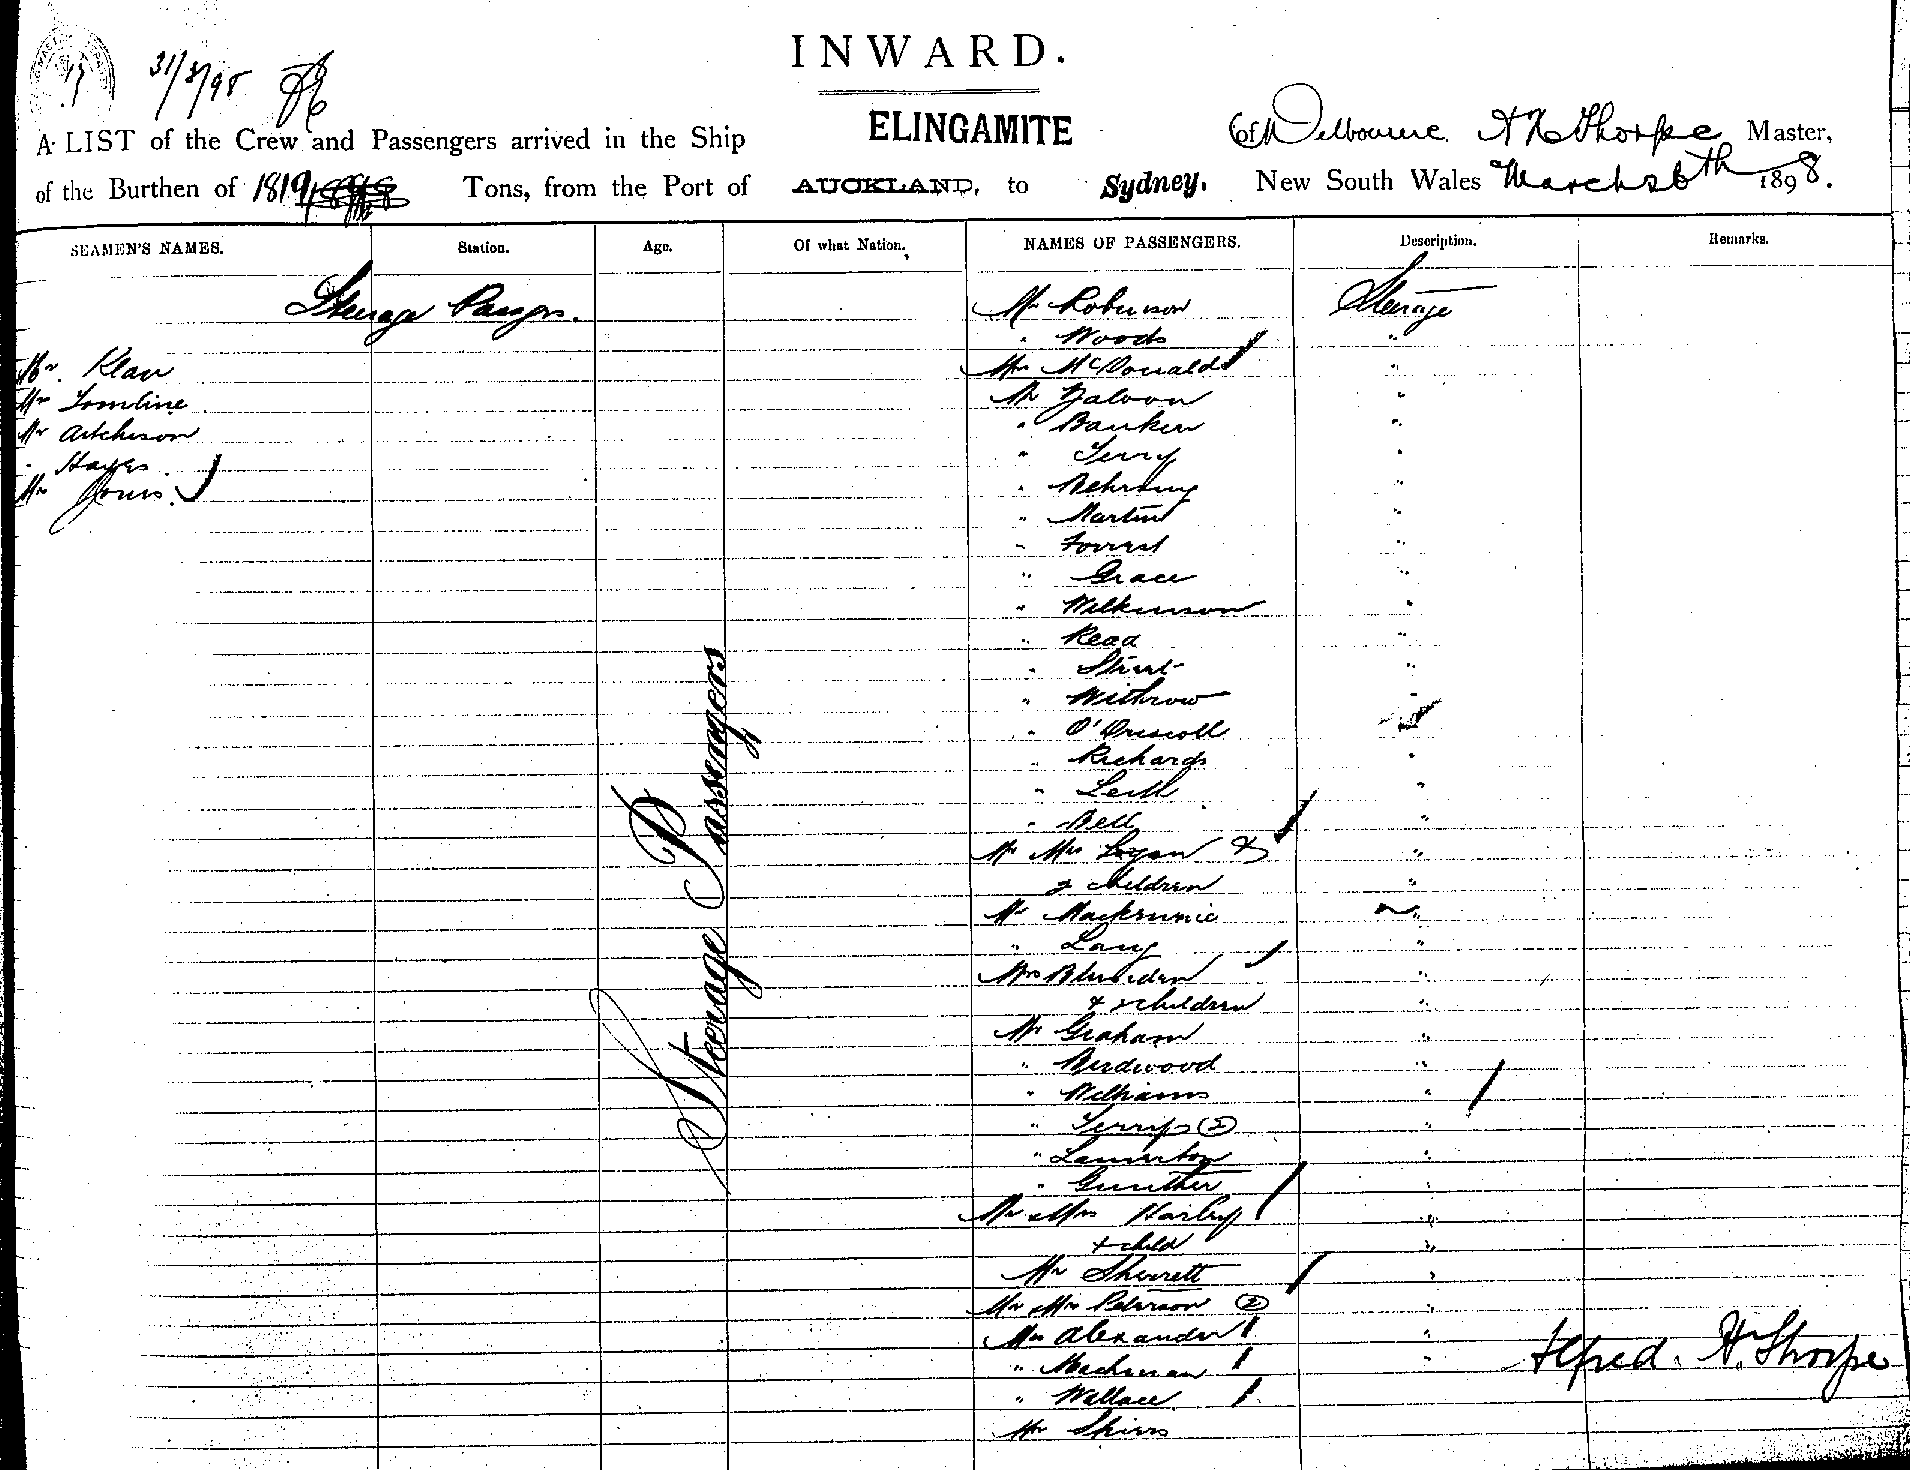 INWARD.
31/3/98
A LIST of the Crew and Passengers arrived in the Ship ELINGAMITE of Melbourne. A H Thorpe Master,
of the Burthen of 1819 Tons, from the Port of AUCKLAND, to Sydney. New South Wales March 26th 1898.
SEAMEN'S NAMES. Station. Age. Of what Nation. NAMES OF PASSENGERS. Description. Remarks.
Steerage Passgrs.
Mr. Klau
Mrs Tomline
Mr Aitcheson
" Hayes.
Mrs Jones.
Steerage Passengers
Mr Robinson Steerage
" Woods "
Mrs McDonald "
Mr "
" Banken "
" Terry "
" Behring "
" Martin "
" Forrest "
" Grace "
" Wilkinson "
" Read "
" Street "
" Withrow "
" O'Driscoll
" Richards "
" Leith "
" Bell "
Mr Mrs Logan & "
2 children "
Mr Mackrunie "
" Lang "
Mrs Blunden "
+ children "
Mr Graham "
" Birdwood "
" Williams "
" Terry (2) "
" Lamerton "
" Gunther "
Mr & Mrs Harley "
+ child "
Mr Sherrett "
Mr & Mrs Peterson (2) "
Mrs Alexander "
" "
" Wallace
Mr Shirrs
Alfred. H. Thorpe